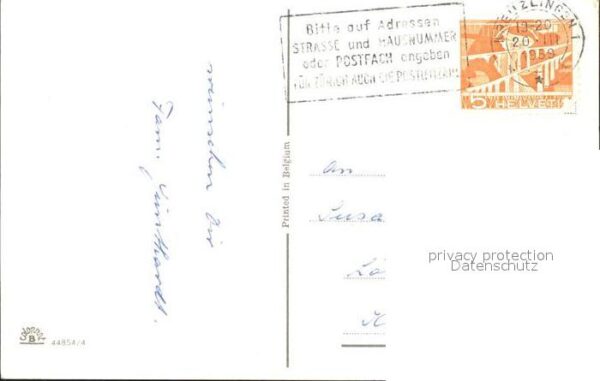 Bitte auf Adressen
STRASSE und HAUSNUMMER
oder POSTFACH angeben
FÜR ZÜRICH AUCH DIE POSTLEITZAHL
KREUZLINGEN 1
19-20
20. III
1959
5 HELVETIA
wünschen Dir
Fam.
Printed in Belgium
An
Susa
privacy protection
Datenschutz
Colorprint
B
44854/4